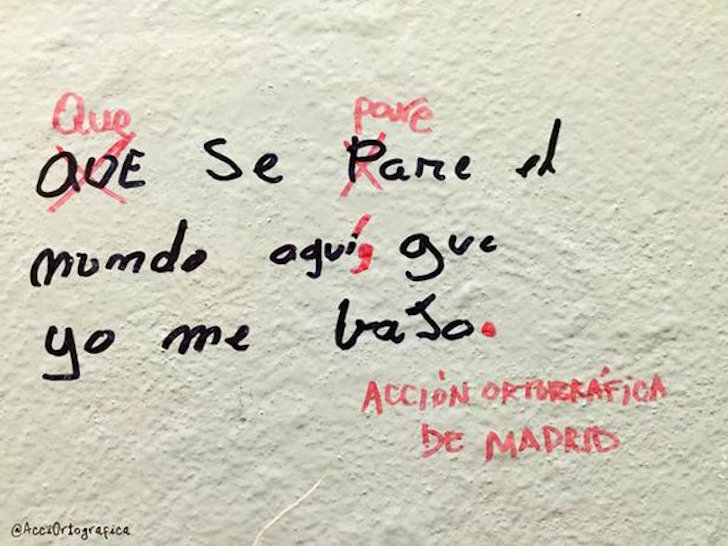 Que pare
QUE se Pare el
mundo aquí, que
yo me bajo.
ACCIÓN ORTOGRÁFICA
DE MADRID
@AcciOrtografica